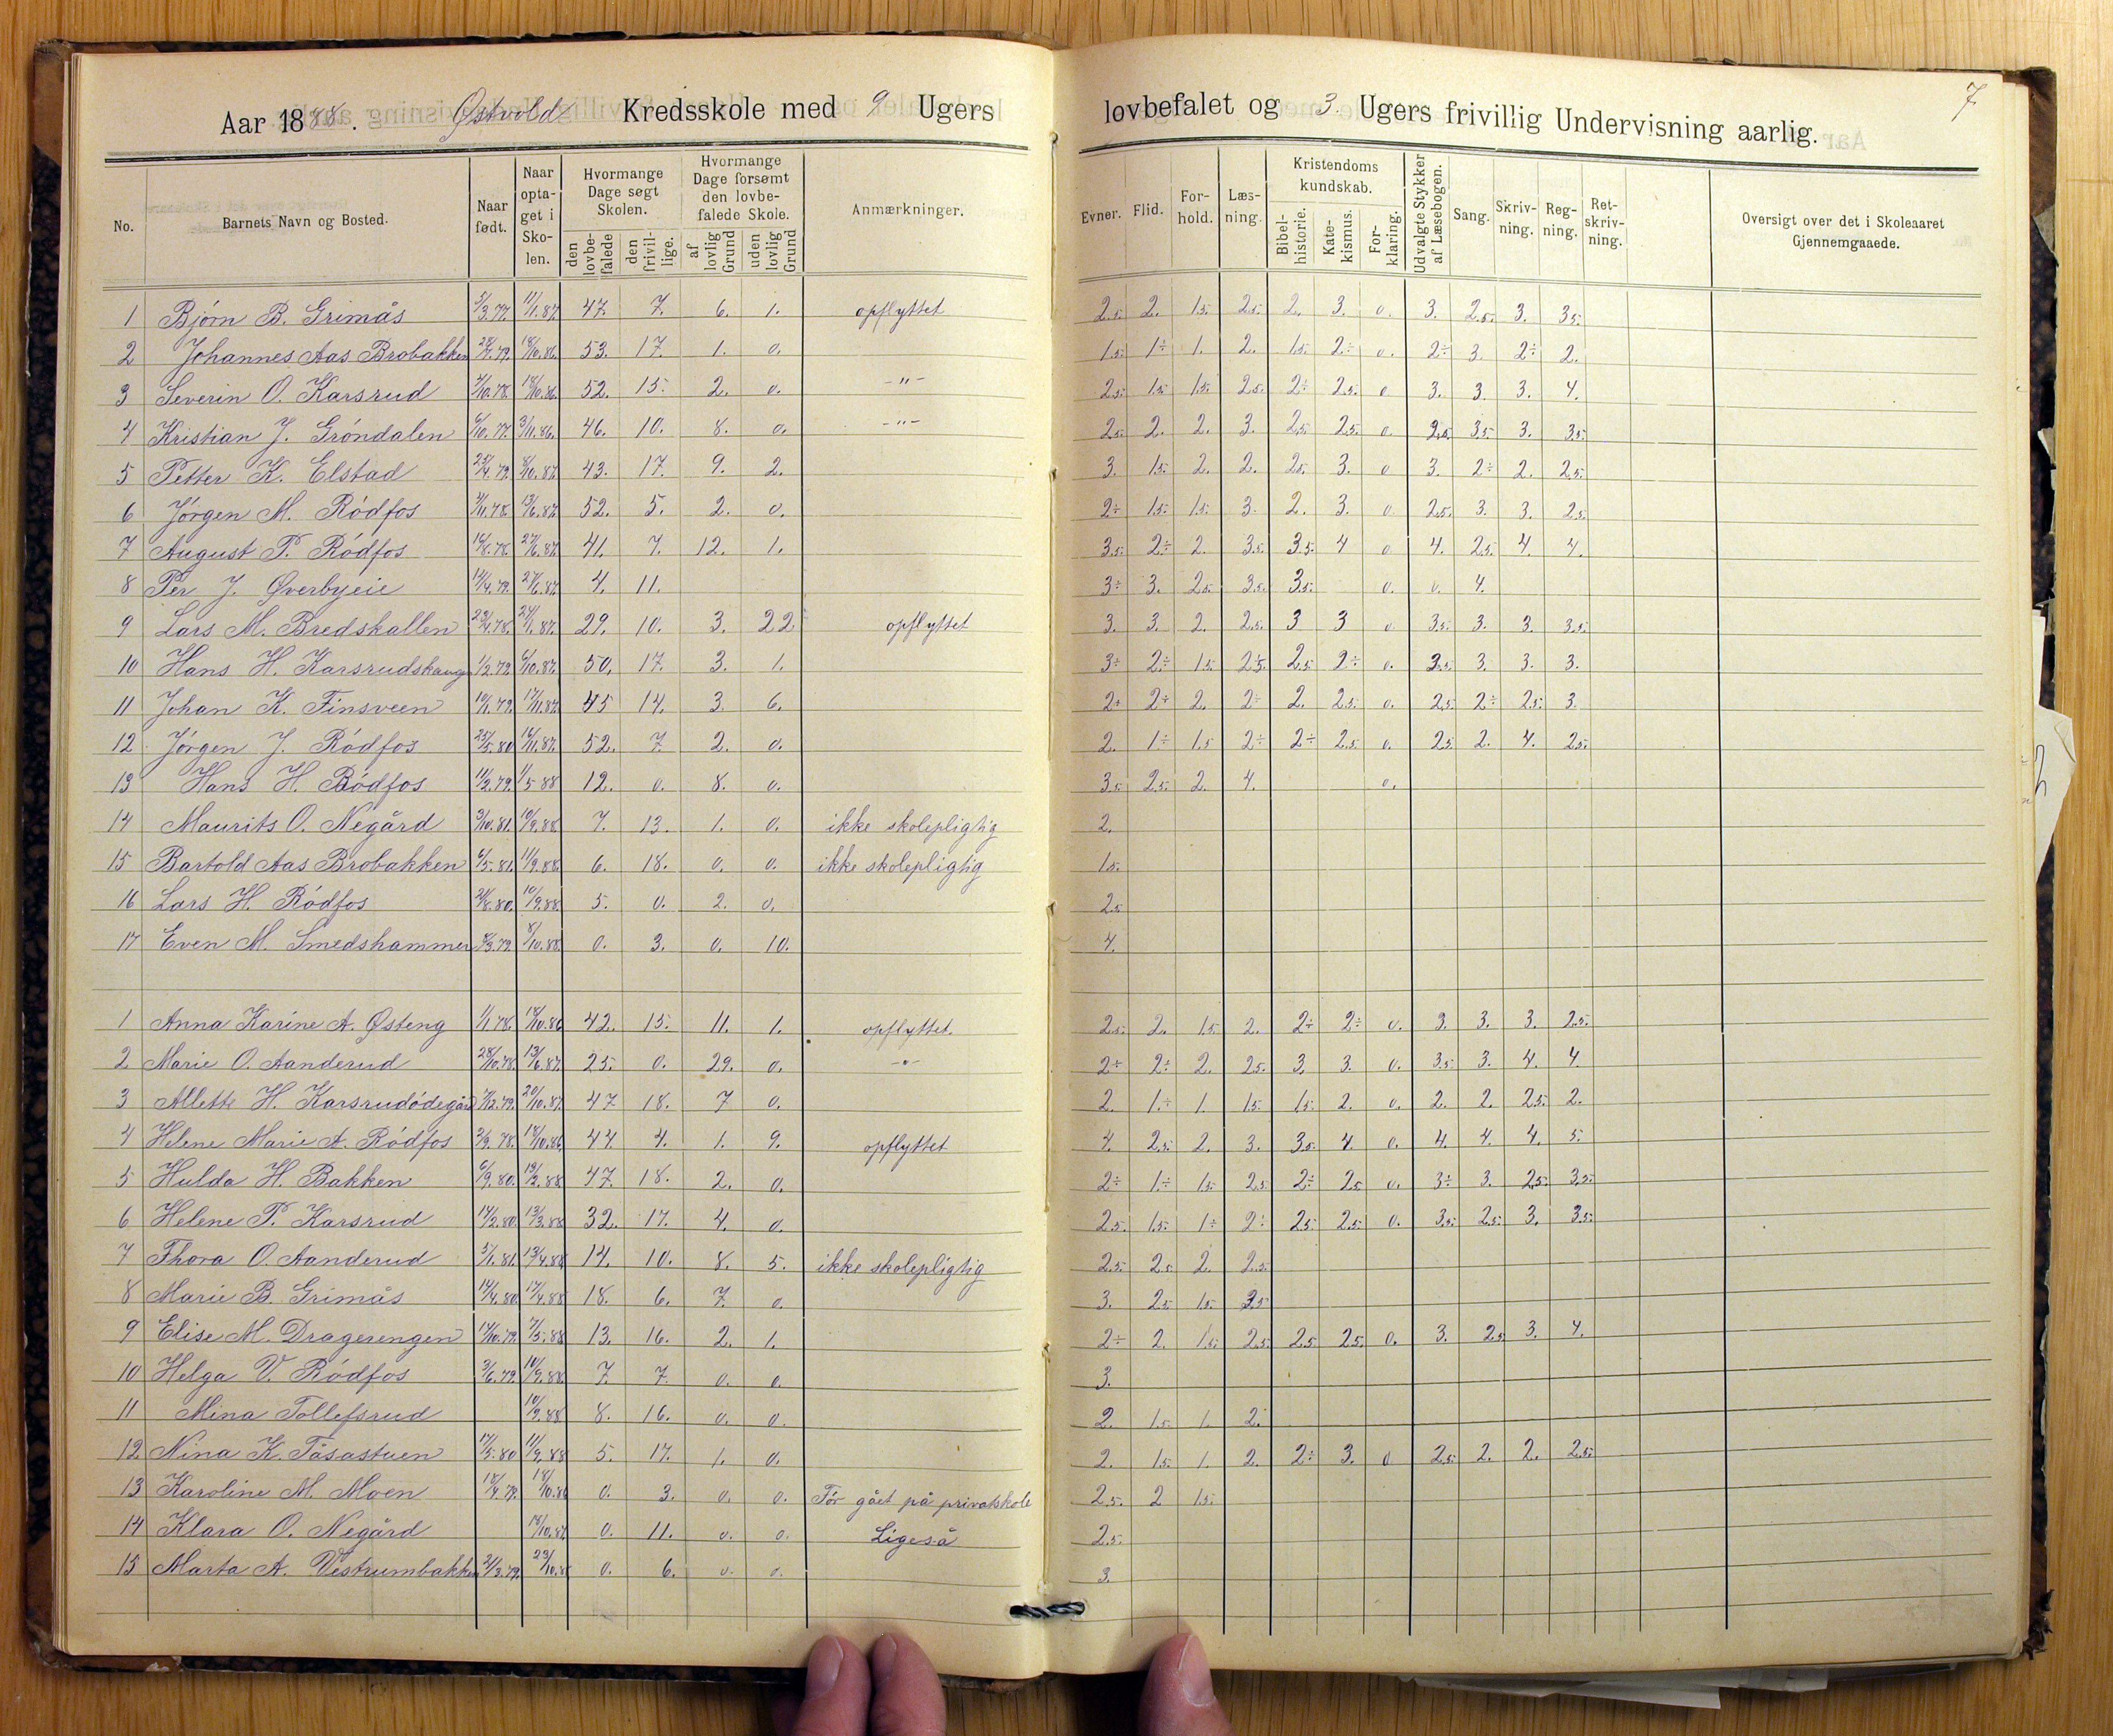 Aar 1888. Østvold Kredsskole med 9 Ugers lovbefalet og 3. Ugers frivillig Undervisning aarlig. 7
No. Barnets Navn og Bosted. Naar født. Naar optaget i Skolen. Hvormange Dage søgt Skolen. den lovbefalede den frivillige. Hvormange Dage forsømt den lovbefalede Skole. af lovlig Grund uden lovlig Grund Anmærkninger. Evner. Flid. Forhold. Læsning. Kristendomskundskab. Bibelhistorie. Katekismus. Forklaring. Udvalgte Stykker af Læsebogen. Sang. Skrivning. Regning. Retskrivning. Oversigt over det i Skoleaaret Gjennemgaaede.
1 Bjørn B. Grimås 5/3.77. 11/1.87. 47. 7. 6. 1. opflyttet 2.5. 2. 1.5. 2.5. 2. 3. 0. 3. 2.5. 3. 3.5.
2 Johannes Aas Brobakken 28/7.79. 18/10.86. 53. 17. 1. 0. 1.5. 1÷ 1. 2. 1.5. 2÷ 0. 2÷ 3. 2÷ 2.
3 Severin O. Karsrud 4/10.78. 18/10.86. 52. 15. 2. 0. -"- 2.5. 1.5. 1.5. 2.5. 2÷ 2.5. 0 3. 3. 3. 4.
4 Kristian J. Gróndalen 6/10.77. 3/11.86. 46. 10. 8. 0. -"- 2.5. 2. 2. 3. 2.5. 2.5. 0. 2.5. 3.5. 3. 3.5.
5 Petter K. Elstad 25/4.79. 8/10.87. 43. 17. 9. 2. 3. 1.5. 2. 2. 2.5. 3. 0 3. 2÷ 2. 2.5.
6 Jórgen M. Ródfos 4/11.78. 13/6.87. 52. 5. 2. 0. 2÷ 1.5. 1.5. 3. 2. 3. 0. 2.5. 3. 3. 2.5.
7 August P. Ródfos 16/8.78. 27/6.87. 41. 7. 12. 1. 3.5. 2÷ 2. 3.5. 3.5. 4 0 4. 2.5. 4. 4.
8 Per J. Øverbyeie 14/4.79. 27/6.87. 4. 11. 3÷ 3. 2.5. 3.5. 3.5. 0. 0. 4.
9 Lars M. Bredskallen 29/4.78. 24/1.87. 29. 10. 3. 22 opflyttet 3. 3. 2. 2.5. 3 3 0 3.5. 3. 3. 3.5.
10 Hans H. Karsrudshaug 1/2.79. 6/10.87. 50. 17. 3. 1. 3÷ 2÷ 1.5. 2.5. 2.5. 2÷ 0. 3.5. 3. 3. 3.
11 Johan K. Finsveen 10/1.79. 17/11.87. 45 14. 3 6. 2÷ 2÷ 2. 2÷ 2. 2.5. 0. 2.5. 2÷ 2.5. 3.
12 Jórgen J. Ródfos 25/5.80 16/11.87. 52. 7. 2. 0. 2. 1÷ 1.5 2÷ 2÷ 2.5. 0. 2.5. 2. 4. 2.5.
13 Hans H. Ródfos 11/2.79. 1/5 88 12. 0. 8. 0. 3.5. 2.5. 2. 4. 0.
14 Maurits O. Negård 3/10.81. 10/9.88. 7. 13. 1. 0. ikke skolepligtig 2.
15 Bartold Aas Brobakken 6/5.81. 11/9.88. 6. 18. 0. 0. ikke skolepligtig 1.5.
16 Lars H. Ródfos 24/8.80. 10/9.88. 5. 0. 2. 0. 2.5
17 Even M. Smedshammer 8/3.79. 8/10.88. 0. 3. 0. 10. 4.
1 Anna Karine A. Østeng 1/1.78. 18/10.86 42. 15. 11. 1. opflyttet. 2.5. 2. 1.5. 2. 2÷ 2÷ 0. 3. 3. 3. 2.5.
2 Marie O. Aanderud 28/10.78. 13/6.87. 25. 0. 29. 0. -"- 2÷ 2÷ 2. 2.5. 3. 3. 0. 3.5. 3. 4. 4.
3 Allette H. Karsrudódegård 7/12.79. 20/10.87. 47 18. 7 0. 2. 1÷ 1. 1.5. 1.5. 2. 0. 2. 2. 2.5. 2.
4 Helene Marie A. Ródfos 2/9.78. 18/10.86. 44. 4. 1. 9. opflyttet 4. 2.5. 2. 3. 3.5. 4. 0. 4. 4. 4. 5.
5 Hulda H. Bakken 6/9.80. 19/2.88. 47. 18. 2. 0. 2÷ 1÷ 1.5. 2.5 2÷ 2.5 0. 3÷ 3. 2.5. 3.5.
6 Helene P. Karsrud 14/2.80. 13/3.88. 32. 17. 4. 0. 2.5. 1.5. 1÷ 2÷ 2.5. 2.5. 0. 3.5. 2.5. 3. 3.5.
7 Thora O. Aanderud 5/1.81. 13/4.88 14. 10. 8. 5. ikke skolepligtig 2.5. 2.5 2. 2.5.
8 Marie B. Grimås 14/4.80. 17/4.88 18. 6. 7. 0. 3. 2.5. 1.5. 3.5
9 Elise M. Dragerengen 14/10.79. 7/5.88 13. 16. 2. 1. 2÷ 2. 1.5. 2.5. 2.5 2.5. 0. 3. 2.5 3. 4.
10 Helga V. Ródfos 3/6.79. 10/9.88. 7. 7. 0. 0. 3.
11 Mina Tollefsrud 10/9.88 8. 16. 0. 0. 2. 1.5. 1. 2.
12 Nina K. Tåsastuen 17/5.80 11/9.88 5. 17. 1. 0. 2. 1.5. 1. 2. 2÷ 3. 0 2.5. 2. 2. 2.5.
13 Karoline M. Moen 18/4.79. 18/10.86 0. 3. 0. 0. Fór gået på privatskole 2.5. 2 1.5.
14 Klara O. Negård 18/10.87. 0. 11. 0. 0. Ligeså 2.5.
15 Marta A. Vestrumbakken 2/3.79. 29/10.8 0. 6. 0. 0. 3.